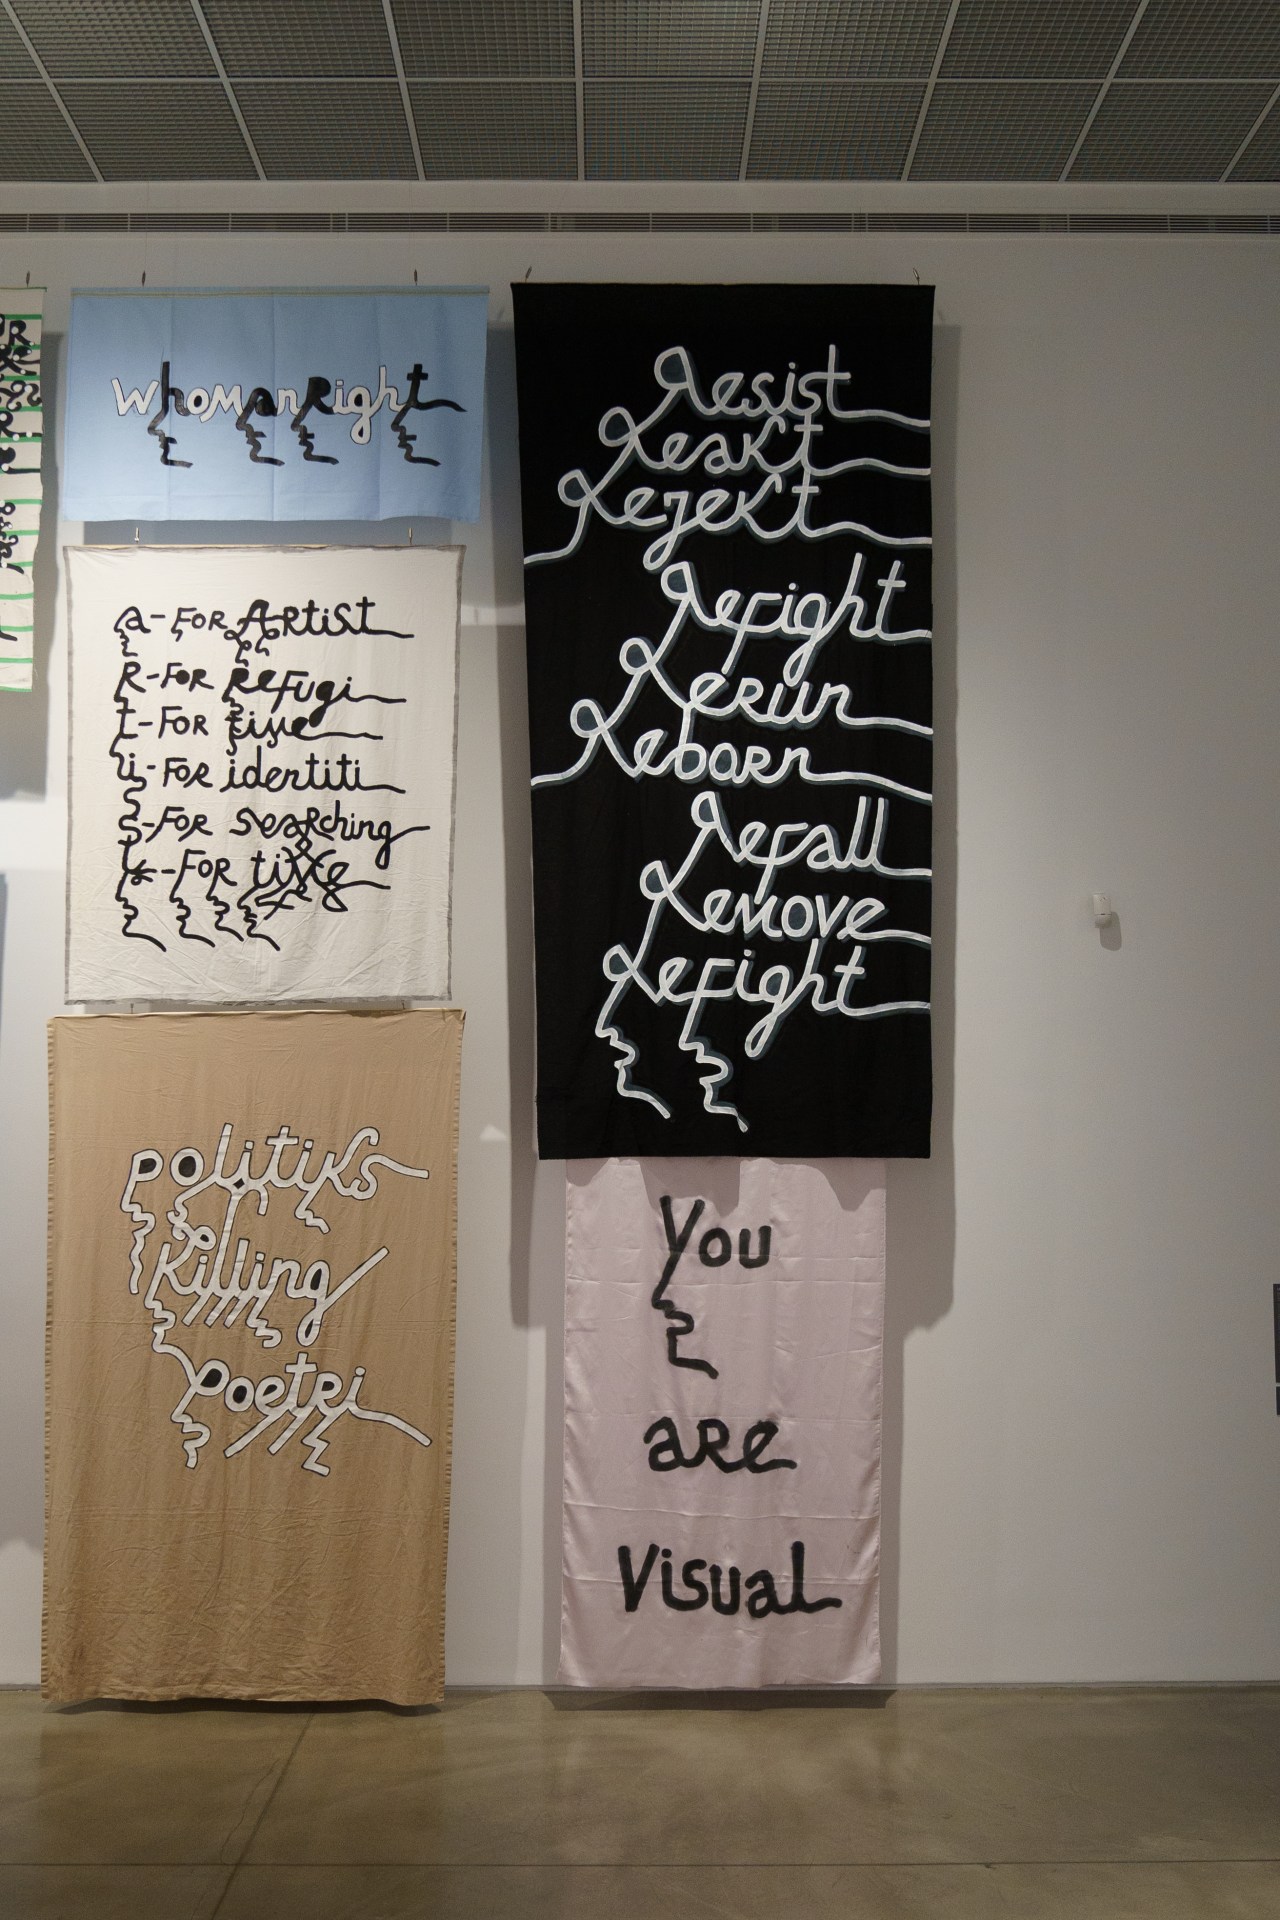 whoManRight
a-FOR ARtiSt
R-FOR Refugi
t-FOR time
i-FOR identiti
S-FOR seaRching
t-FOR time
politiks
killing
poetri
Resist
Reakt
Rejekt
Refight
Rerun
Reborn
Refall
Remove
Refight
You
are
Visual